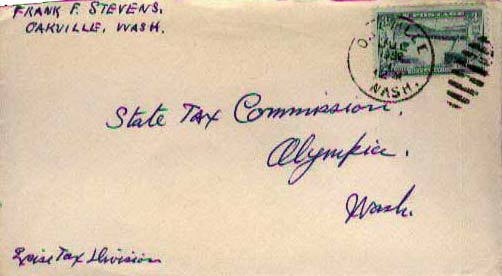 FRANK F. STEVENS.
OAKVILLE, WASH.
POSTAGE
WASH.
State Tax Commission,
Olympia,
Wash.
Excise Tax Division